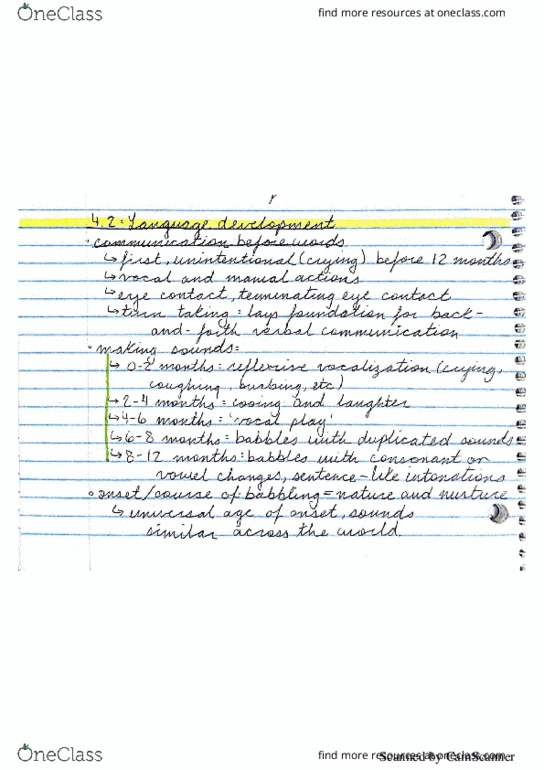 OneClass
find more resources at oneclass.com
4.2: Language development
• communication before words
↳ first, unintentional (crying) before 12 months
↳ vocal and manual actions
↳ eye contact, terminating eye contact
↳ turn taking: lays foundation for back-
and-forth verbal communication
• making sounds:
↳ 0-2 months: reflexive vocalization (crying,
coughing, burbing, etc)
↳ 2-4 months: cooing and laughter
↳ 4-6 months: 'vocal play'
↳ 6-8 months: babbles with duplicated sounds
↳ 8-12 months: babbles with consonant or
vowel changes, sentence-like intonations
• onset/course of babbling = nature and nurture
↳ universal age of onset, sounds
similar across the world.
OneClass
find more resources at oneclass.com
Scanned by CamScanner